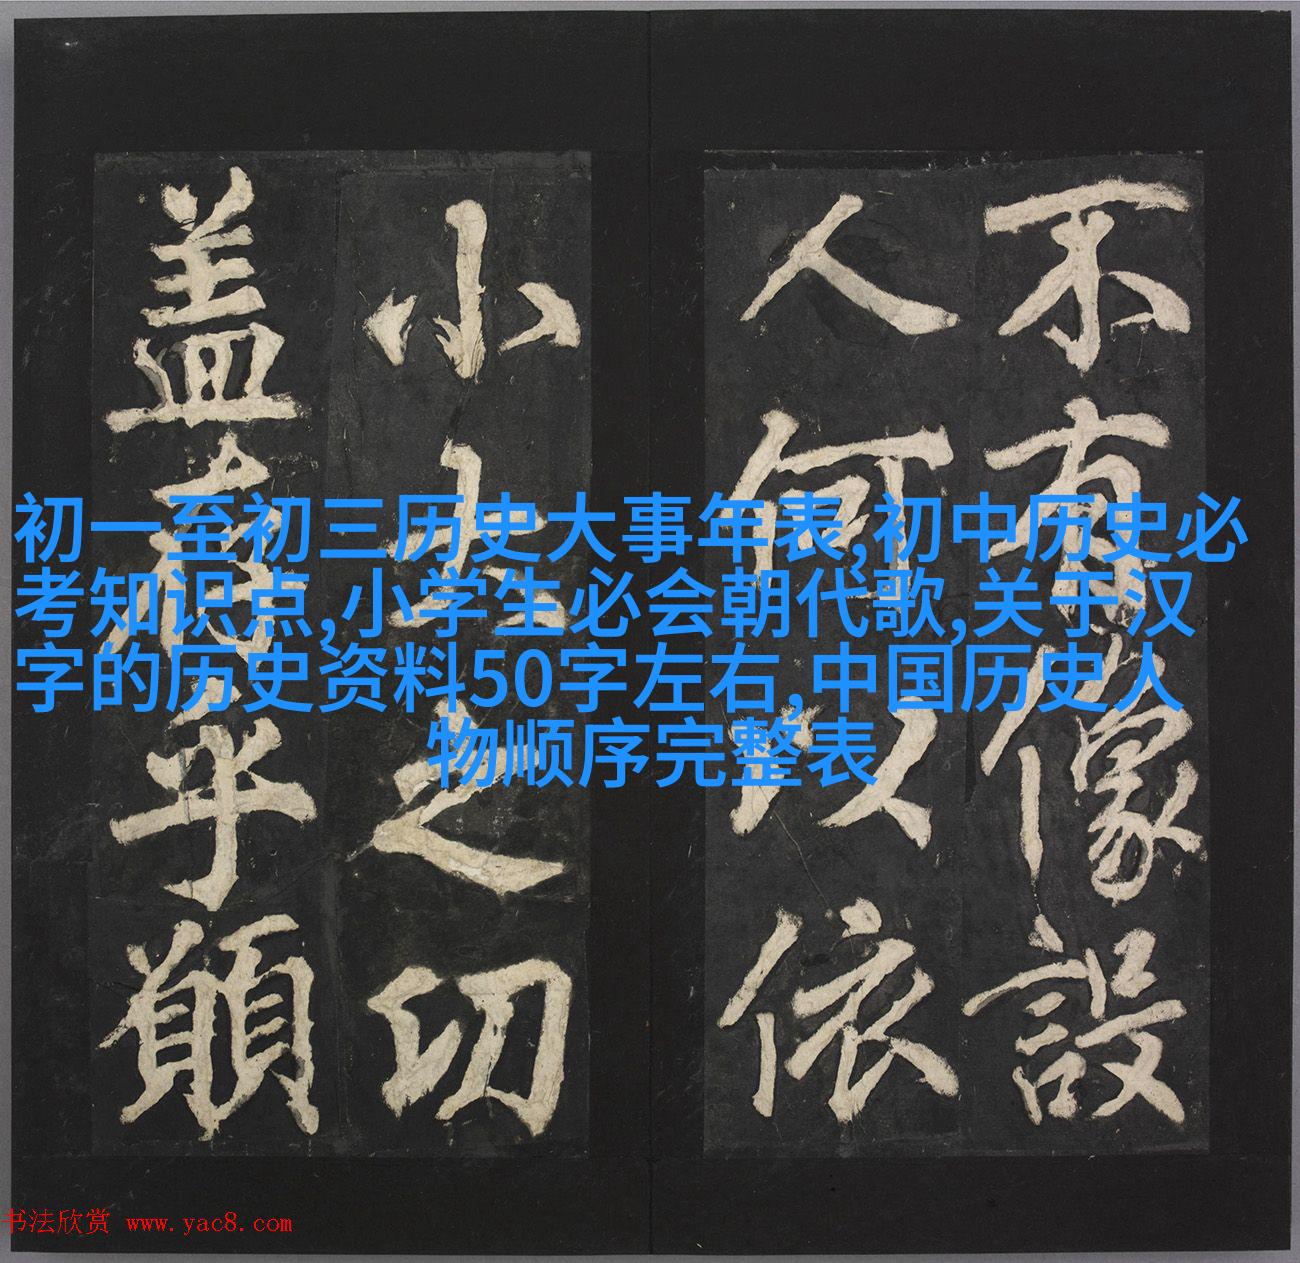 不有像設
人何以依
小之
盖乎
初一至初三历史大事年表,初中历史必
考知识点,小学生必会朝代歌,关于汉
字的历史资料50字左右,中国历史人
物顺序完整表
书法欣赏 www.yac8.com